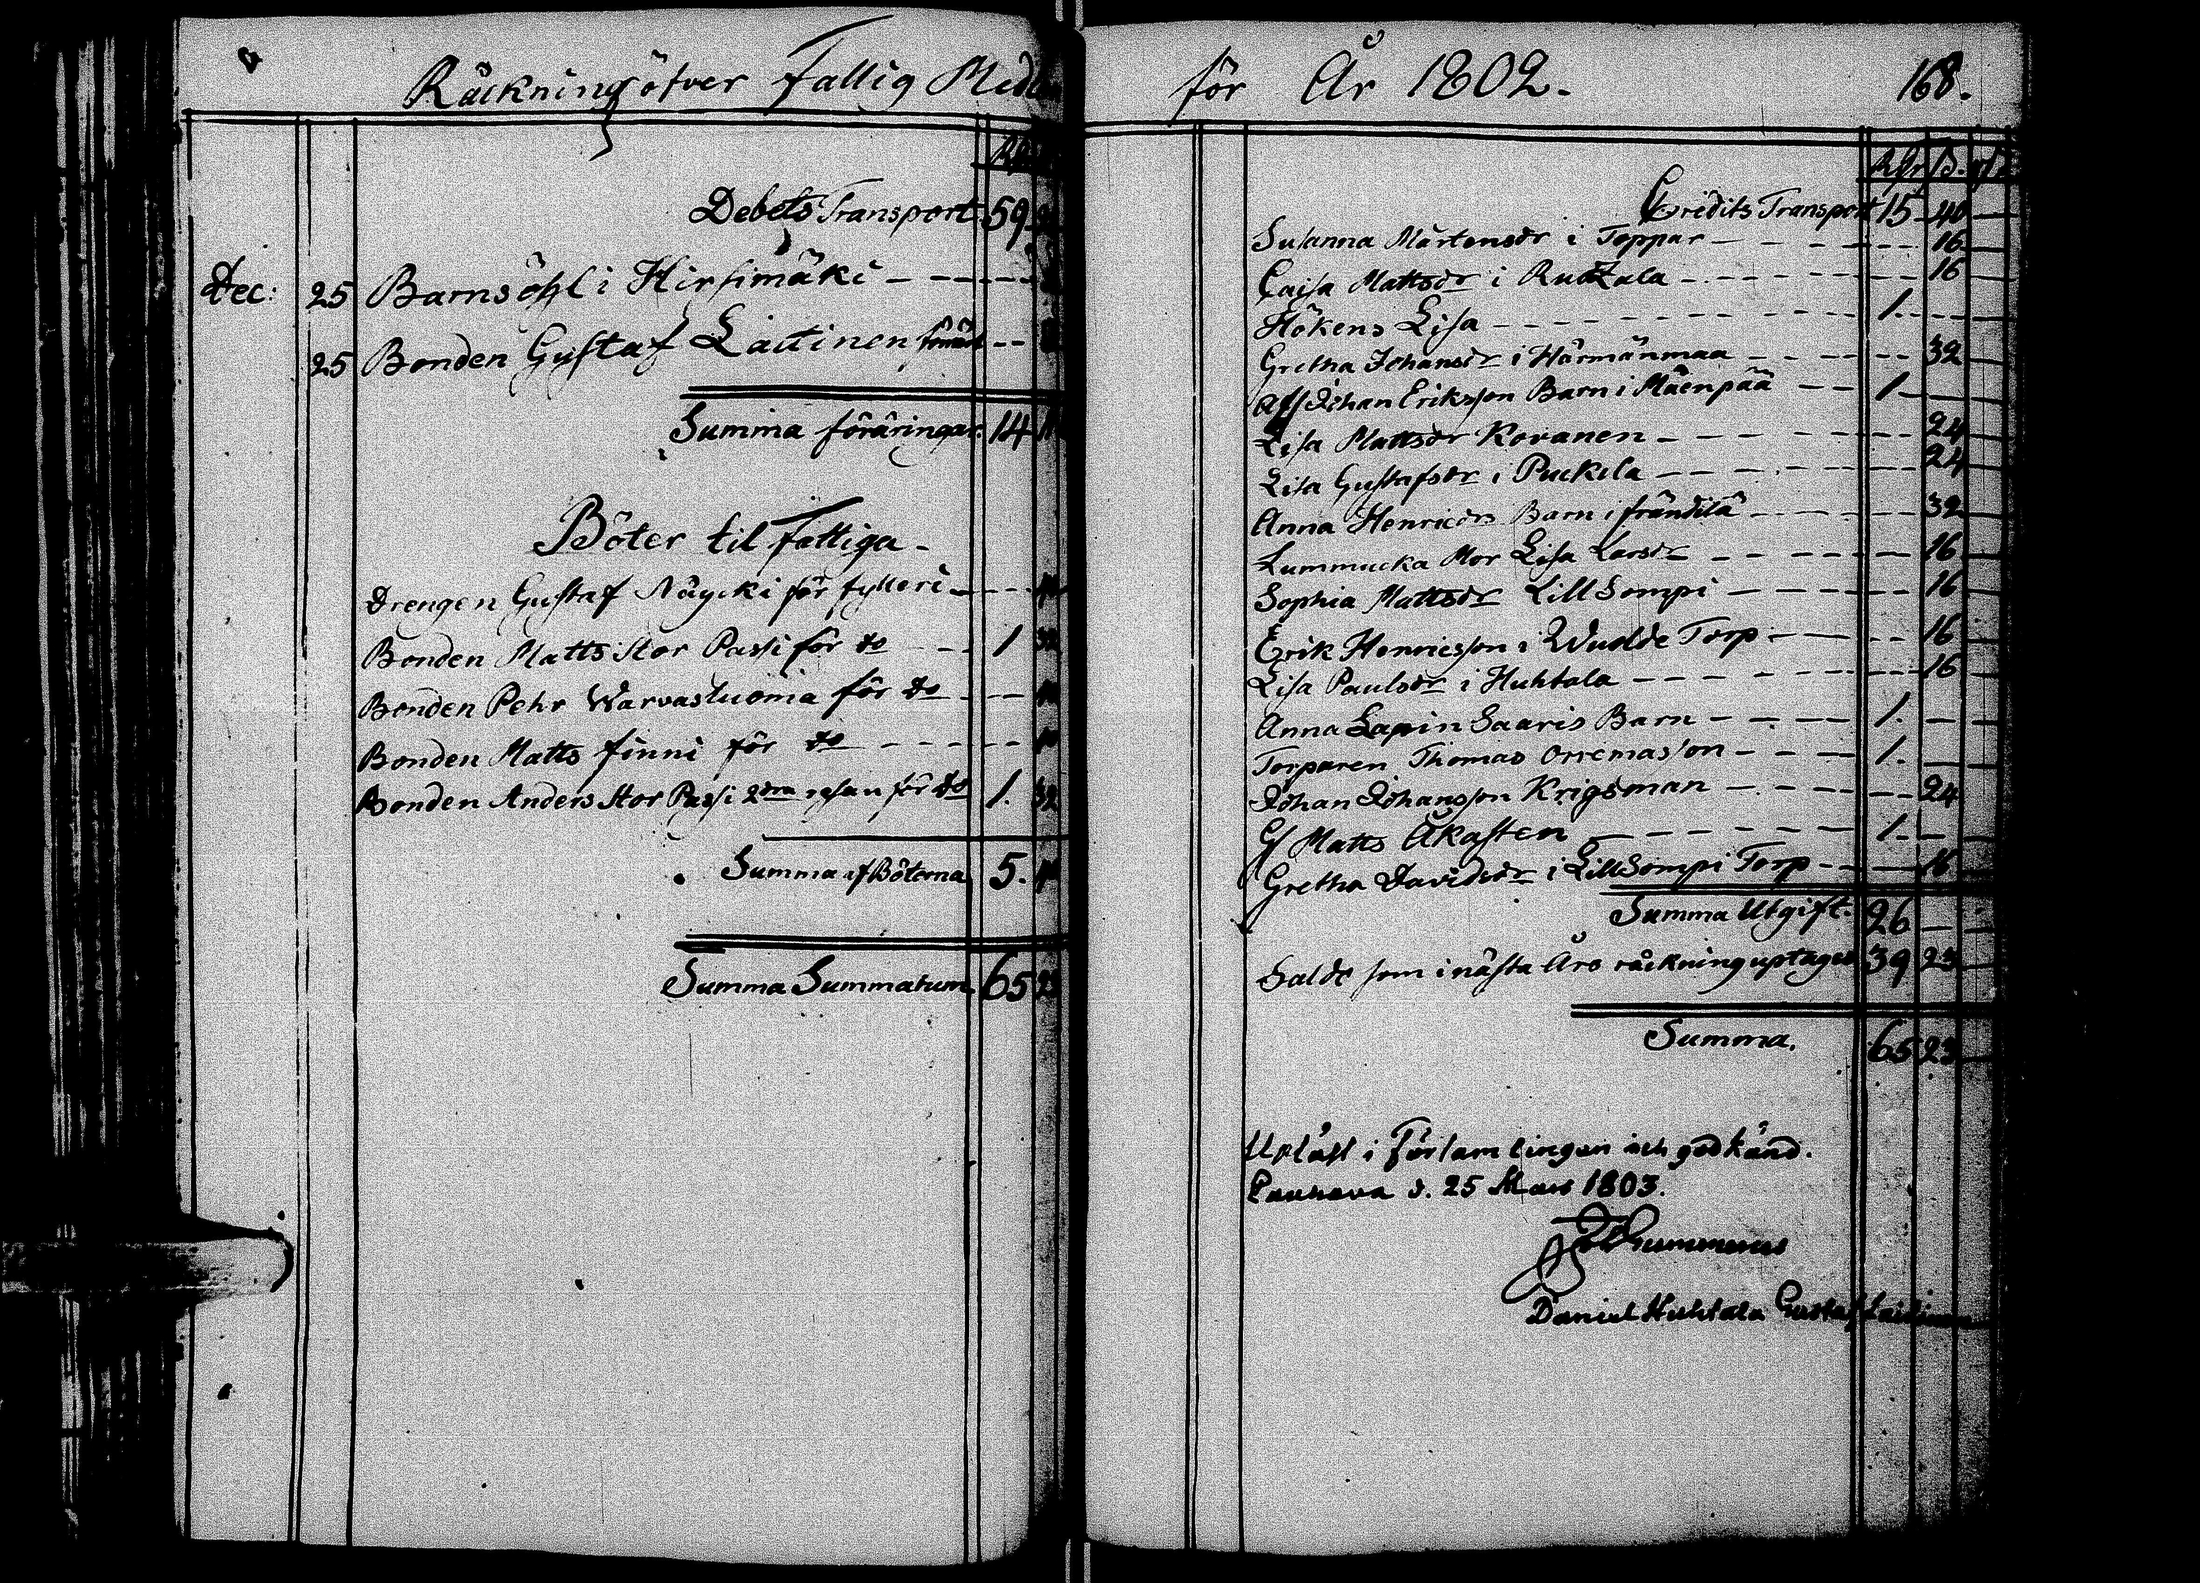 Räkning öfver Fattig Medlen
Debets Transport 59
Dec: 25 Barnsöhl i Hirsimäki
25 Bonden Gustaf Laitinen
Summa föräringar. 14
Böter til Fattiga
Drengen Gustaf Näycki för fylleri
Bonden Matts Stor Passi för do 1 32
Bonden Pehr Warvastuoma för do
Bonden Matts finni för do
Bonden Anders Stor Passi 2dra resan för do 1. 32
Summa af Böterna 5.
Summa Summarum. 65 23
för År 1802. 168.
Rdr B. rst.
Credits Transport 15 40 —
Susanna Mårtensdr i Toppar 16
Caisa Mattsdr i 16
Hökens Lisa 1.
Gretha Johansdr i Härmänmaa 32
Johan Eriksson Barn i Mäenpää 1
Lisa Mattsdr Kovanen 24
Lisa Gustafsdr i Puckila 24
Anna Henricdrs Barn i frändilä 32
Lummucka Mor Lisa Larsdr 16
Sophia Mattsdr Lill Sompi 16
Erik Henricsson i Wudde Torp 16
Lisa Paulsdr i Huhtala 16
Anna Lapin Saaris Barn 1. —
Torparen Thomas Orremasson 1. —
Johan Johansson Krigsman 24
Matts Åkasten 1. —
Gretha Davidsdr i LillSompi Torp 16
Summa Utgift. 26 —
Saldo som i nästa Års räkning uptages 39 23
Summa. 65 23
Uplåst i Församlingen och godkänd.
d. 25 Mars 1803.
Daniel Huhtala Gustaf Laitinen